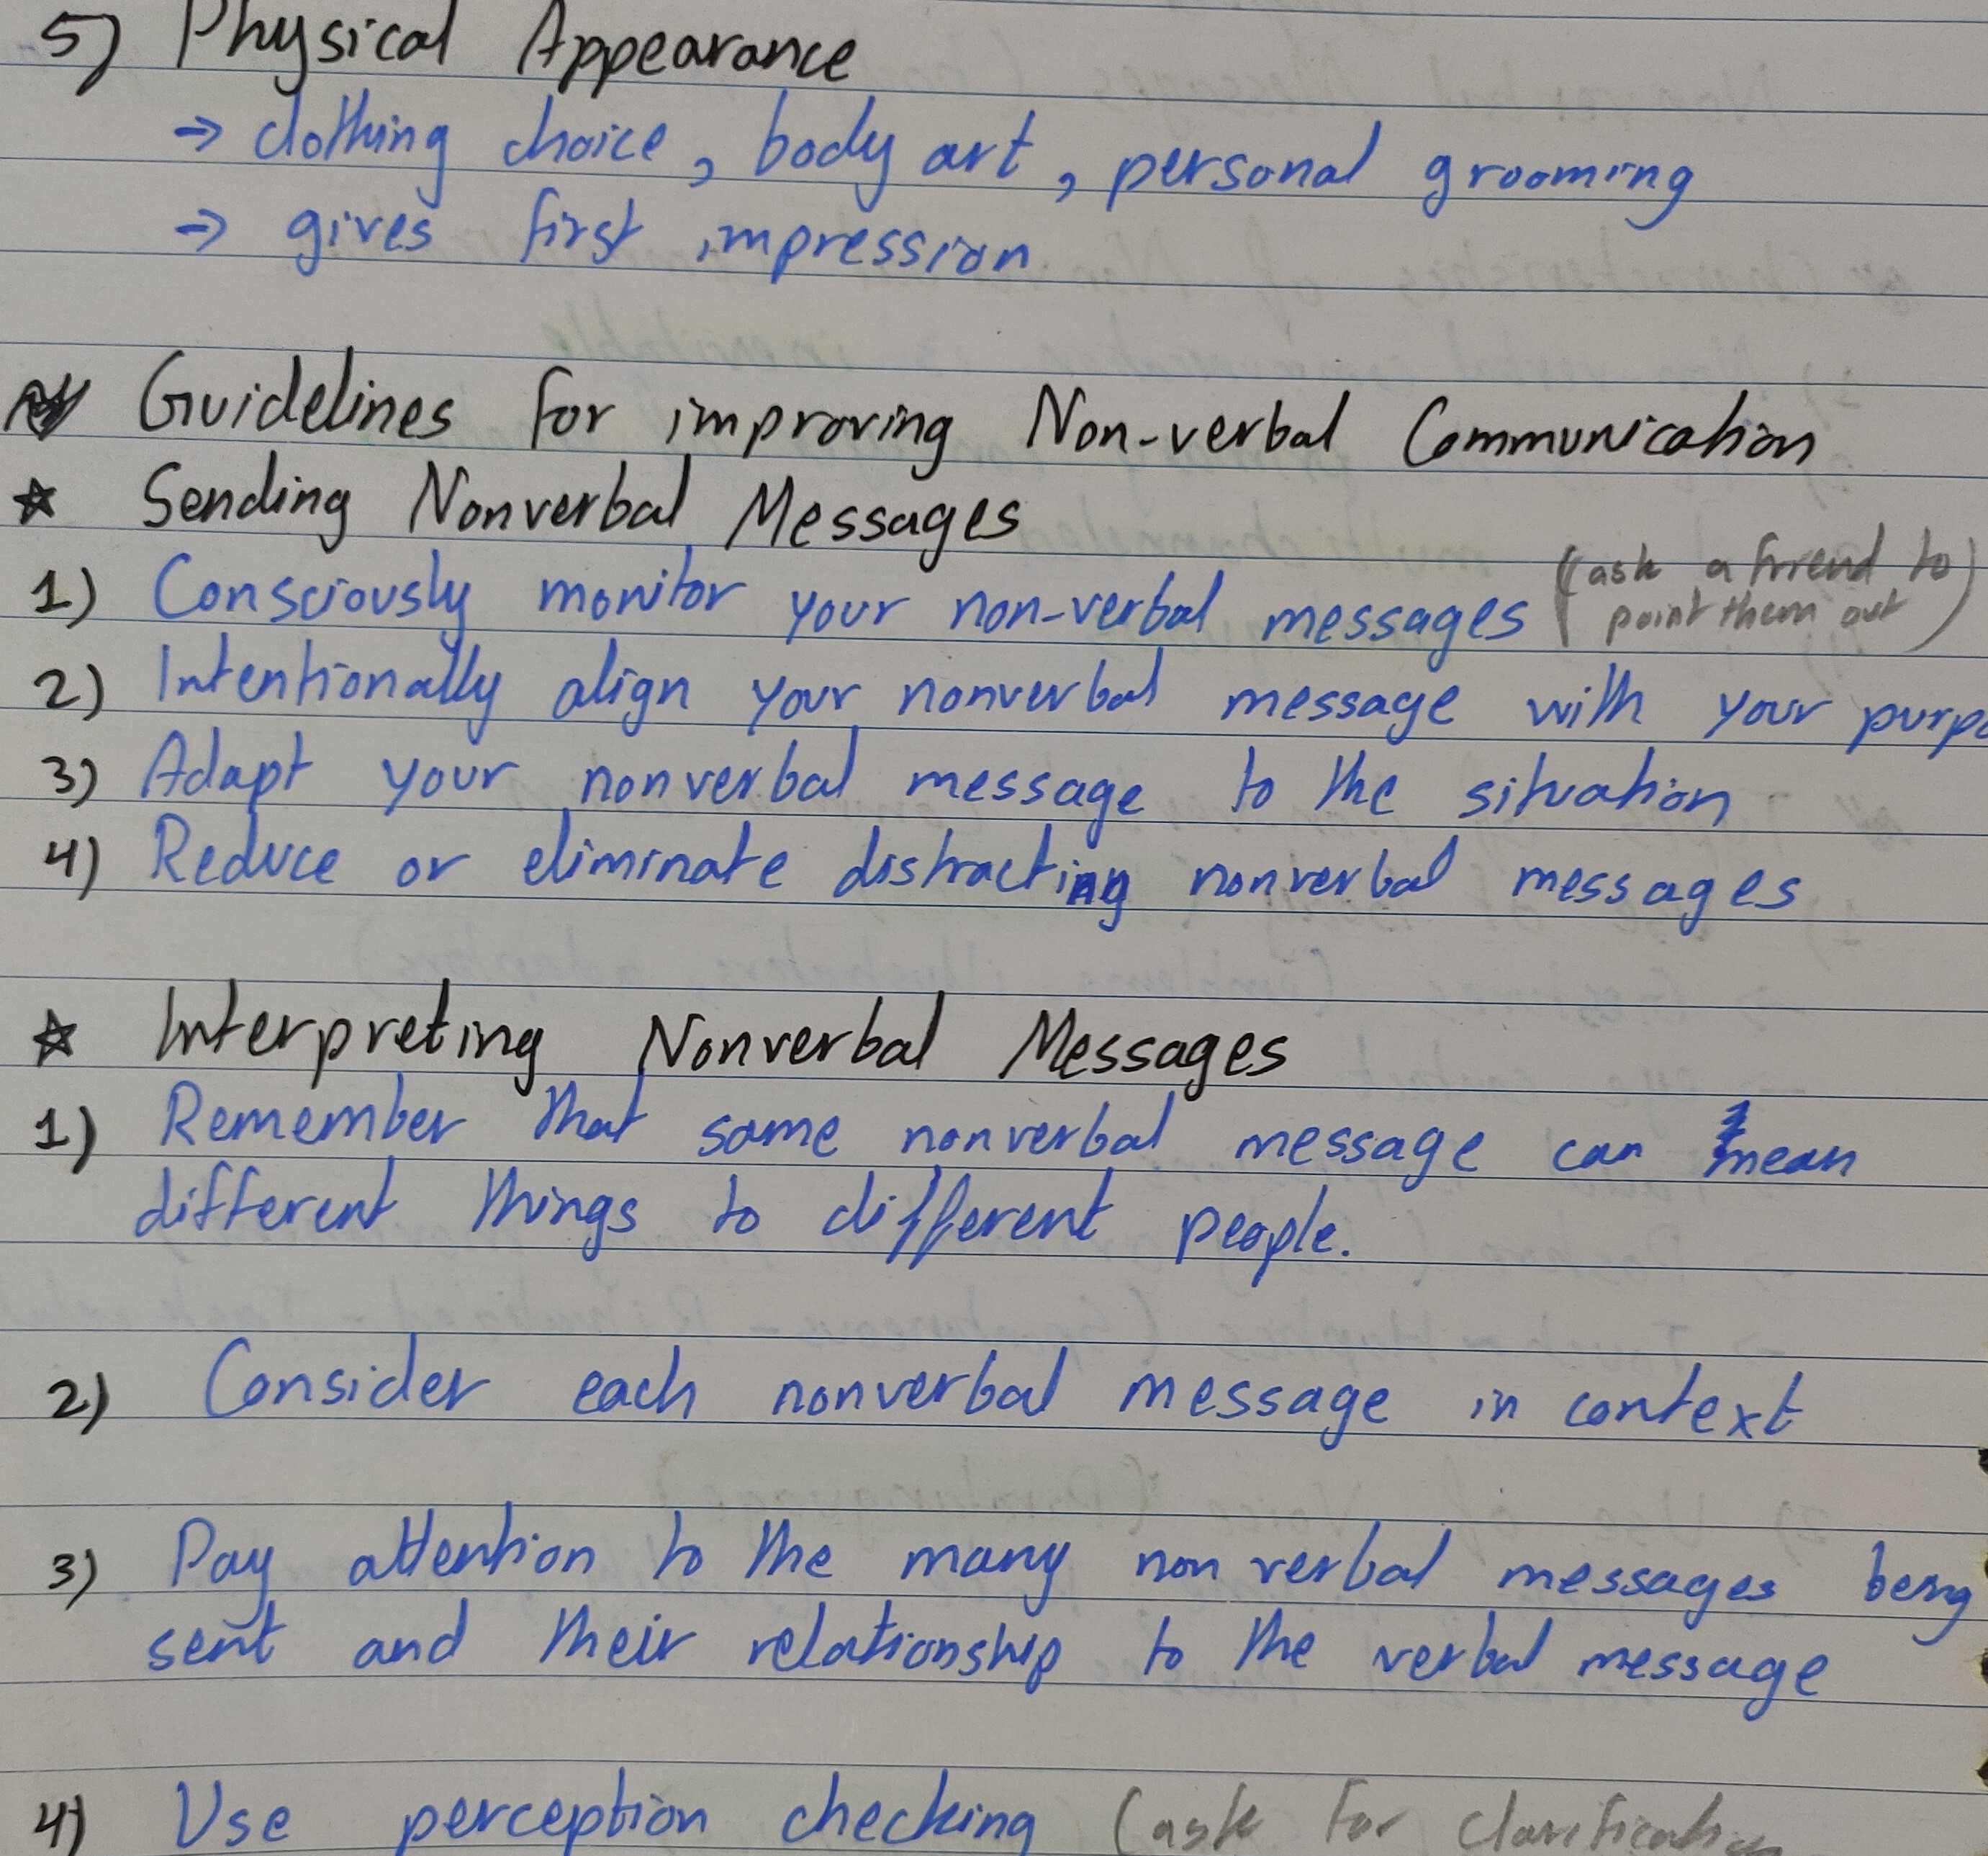 5) Physical Appearance
→ clothing choice, body art, personal grooming
→ gives first impression
Guidelines for improving Non-verbal Communication
☆ Sending Nonverbal Messages
1) Consciously monitor your non-verbal messages (ask a friend to
point them out)
2) Intentionally align your nonverbal message with your purpo
3) Adapt your nonverbal message to the situation
4) Reduce or eliminate distracting nonverbal messages
☆ Interpreting Nonverbal Messages
1) Remember that same nonverbal message can mean
different things to different people.
2) Consider each nonverbal message in context
3) Pay attention to the many non verbal messages being
sent and their relationship to the verbal message
4) Use perception checking (ask for clarification